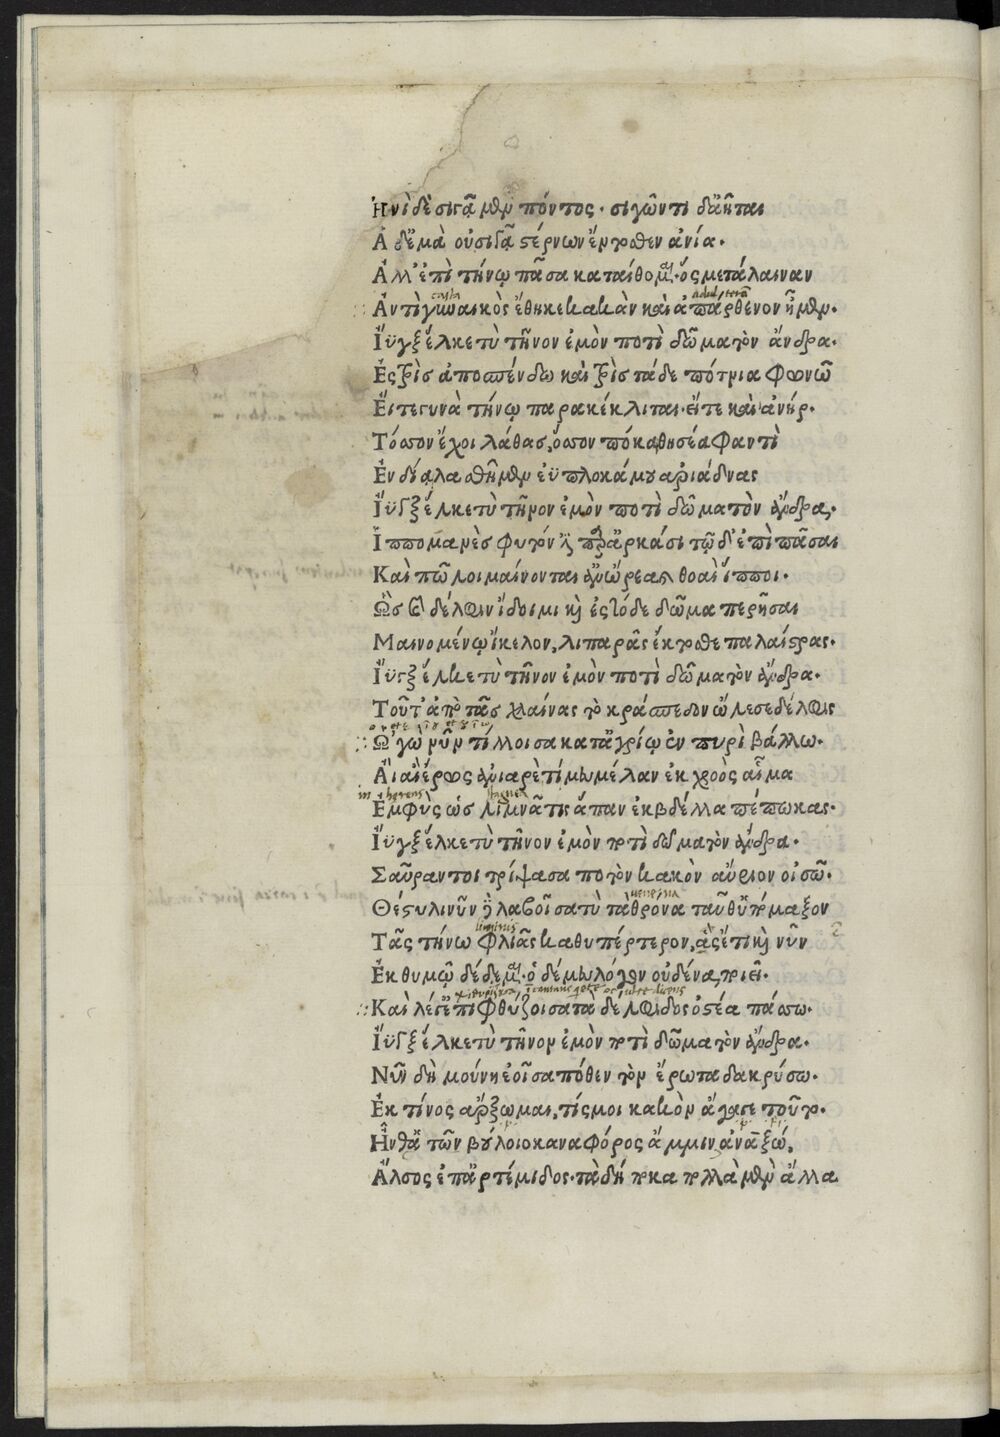 Ἠνὶδὲ σιγᾷ μὲν πόντος· σιγῶντι δ' ἀῆται
Ἁ δ' ἐμὰ οὐ σιγᾷ στέρνων ἔντοθεν ἀνία·
Ἀλλ' ἐπὶ τήνῳ πᾶσα καταίθομαι· ὅς με τάλαιναν
casta adulteram
Ἀντὶ γυναικὸς ἔθηκε κακὰν καὶ ἀπάρθενον ἦμεν·
Ἴϋγξ ἕλκε τὺ τῆνον ἐμὸν ποτὶ δῶμα τὸν ἄνδρα·
Ἐς τρὶς ἀποσπένδω καὶ τρὶς τάδε πότνια φωνῶ
Εἴτε γυνὰ τήνῳ παρακέκλιται· εἴτε καὶ ἀνήρ·
Τόσσον ἔχοι λάθας, ὅσσον πόκα θησέα φαντὶ
Ἐν δίᾳ λασθῆμεν ἐϋπλοκάμου ἀριάδνας
Ἴϋγξ ἕλκε τὺ τῆνον ἐμὸν ποτὶ δῶμα τὸν ἄνδρα·
Ἱππομανὲς φυτόν ἐστι παρ' ἀρκάσι τῷ δ' ἐπὶ πᾶσαι
Καὶ πῶλοι μαίνονται ἀν' ὤρεα καὶ θοαὶ ἵπποι·
Ὣς καὶ δέλφιν ἴδοιμι καὶ ἐς τόδε δῶμα περῆσαι
Μαινομένῳ ἴκελον, λιπαρᾶς ἔκτοθε παλαίστρας·
Ἴϋγξ ἕλκε τὺ τῆνον ἐμὸν ποτὶ δῶμα τὸν ἄνδρα·
Τοῦτ' ἀπὸ τᾶς χλαίνας τὸ κράσπεδον ὤλεσε δέλφις
Ὡ 'γὼ νῦν τίλλοισα κατ' ἀγρίῳ ἐν πυρὶ βάλλω·
Αἲ αἲ ἔρως ἀνιαρὲ τί μευ μέλαν ἐκ χροὸς αἷμα
in herens stagnea
Ἐμφὺς ὡς λιμνᾶτις ἅπαν ἐκ βδέλλα πέπωκας·
Ἴϋγξ ἕλκε τὺ τῆνον ἐμὸν ποτὶ δῶμα τὸν ἄνδρα·
Σαῦραν τοι τρίψασα ποτὸν κακὸν αὔριον οἰσῶ·
venena
Θέστυλι νῦν δὲ λαβοῖσα τὺ τὰ θρόνα ταῦθ' ὑπόμαξον
liminis
Τᾶς τήνω φλιᾶς καθυπέρτερον, ἇς ἔτι καὶ νῦν
Ἐκ θυμῷ δέδεμαι· ὁ δέ μευ λόγον οὐδένα ποιεῖ·
Καὶ λέγ' ἐπιφθύζοισα τὰ δέλφιδος ὀστέα πάσσω·
Ἴϋγξ ἕλκε τὺ τῆνον ἐμὸν ποτὶ δῶμα τὸν ἄνδρα·
Νῦν δὴ μούνη ἐοῖσα πόθεν τὸν ἔρωτα δακρύσω·
Ἐκ τίνος ἄρξωμαι, τίς μοι κακὸν ἄγαγε τοῦτο·
Ἦνθ' ἁ τῶν βύλοιο καναφόρος ἄμμιν ἀναξώ,
Ἄλσος ἐπ' ἀρτέμιδος· τᾷ δή ποκα πολλὰ μὲν ἄλλα